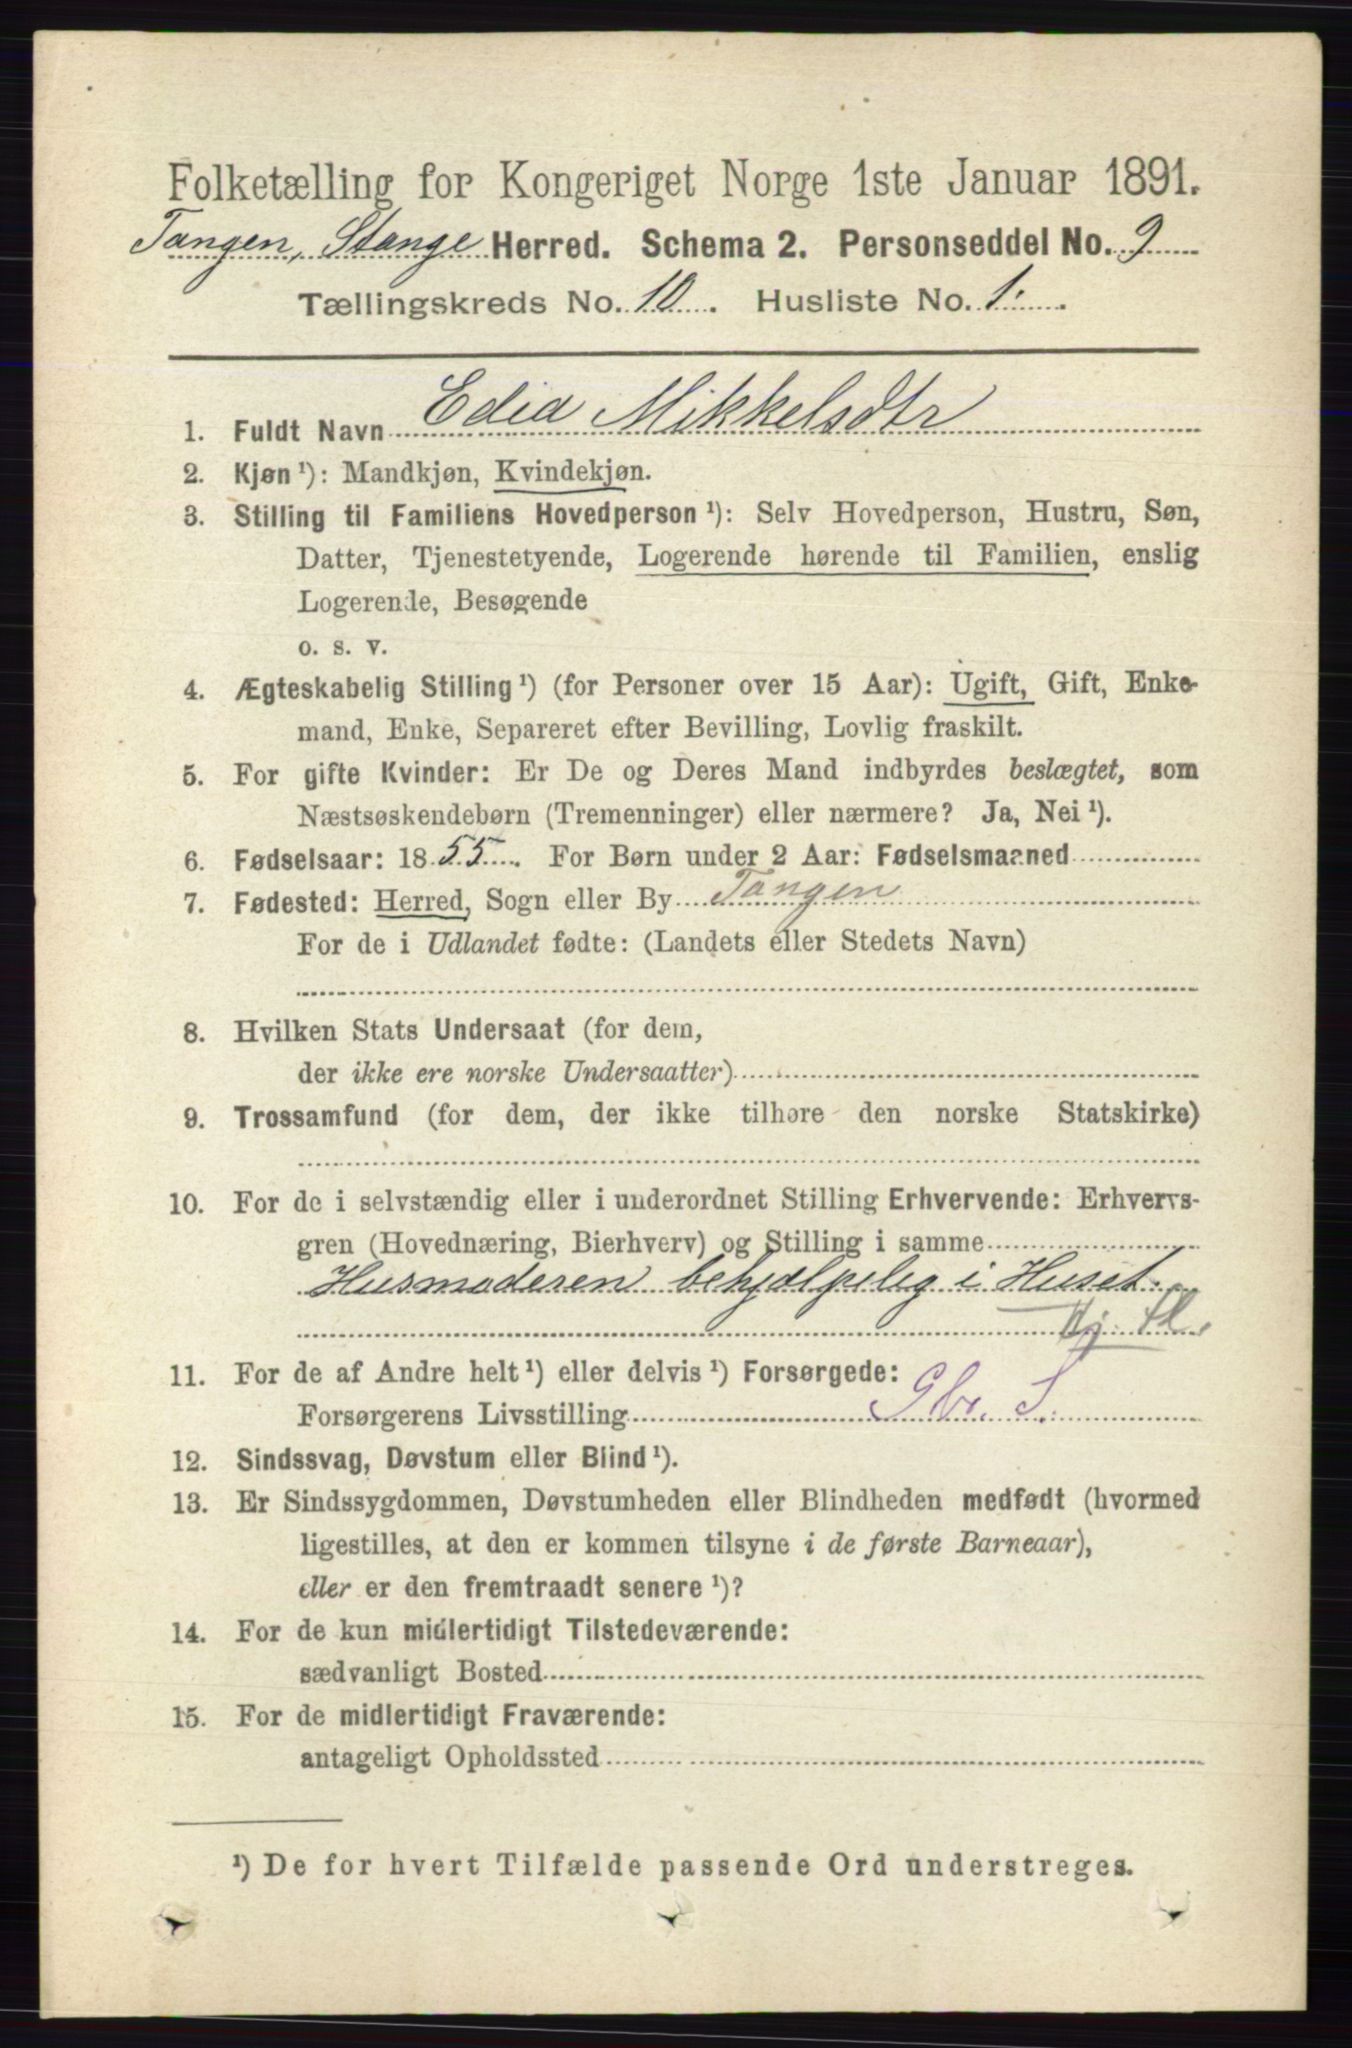 Folketælling for Kongeriget Norge 1ste Januar 1891.
Tangen, Stange Herred. Schema 2. Personseddel No. 9
Tællingskreds No. 10. Husliste No. 1.
1. Fuldt Navn Edia Mikkelsdtr
2. Kjøn ¹): Mandkjøn, Kvindekjøn.
3. Stilling til Familiens Hovedperson ¹): Selv Hovedperson, Hustru, Søn,
Datter, Tjenestetyende, Logerende hørende til Familien, enslig
Logerende, Besøgende
o. s. v.
4. Ægteskabelig Stilling ¹) (for Personer over 15 Aar): Ugift, Gift, Enke-
mand, Enke, Separeret efter Bevilling, Lovlig fraskilt.
5. For gifte Kvinder: Er De og Deres Mand indbyrdes beslægtet, som
Næstsøskendebørn (Tremenninger) eller nærmere? Ja, Nei ¹).
6. Fødselsaar: 1855. For Børn under 2 Aar: Fødselsmaaned
7. Fødested: Herred, Sogn eller By Tangen
For de i Udlandet fødte: (Landets eller Stedets Navn)
8. Hvilken Stats Undersaat (for dem,
der ikke ere norske Undersaatter)
9. Trossamfund (for dem, der ikke tilhøre den norske Statskirke)
10. For de i selvstændig eller i underordnet Stilling Erhvervende: Erhvervs-
gren (Hovednæring, Bierhverv) og Stilling i samme
Husmoderen behjælpelig i Huset.
11. For de af Andre helt ¹) eller delvis ¹) Forsørgede:
Forsørgerens Livsstilling Gbr. S.
12. Sindssvag, Døvstum eller Blind ¹).
13. Er Sindssygdommen, Døvstumheden eller Blindheden medfødt (hvormed
ligestilles, at den er kommen tilsyne i de første Barneaar),
eller er den fremtraadt senere ¹)?
14. For de kun midlertidigt Tilstedeværende:
sædvanligt Bosted
15. For de midlertidigt Fraværende:
antageligt Opholdssted
¹) De for hvert Tilfælde passende Ord understreges.